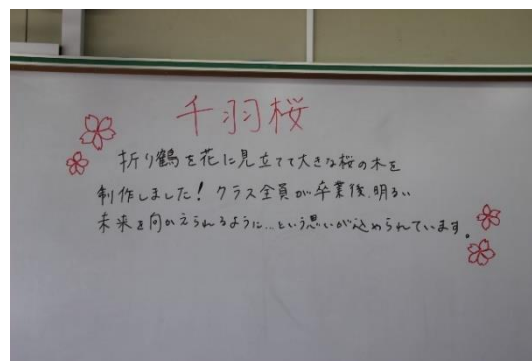 千羽桜
折り鶴を花に見立てて大きな桜の木を
制作しました！クラス全員が卒業後、明るい
未来を向かえられるように…という思いが込められています。